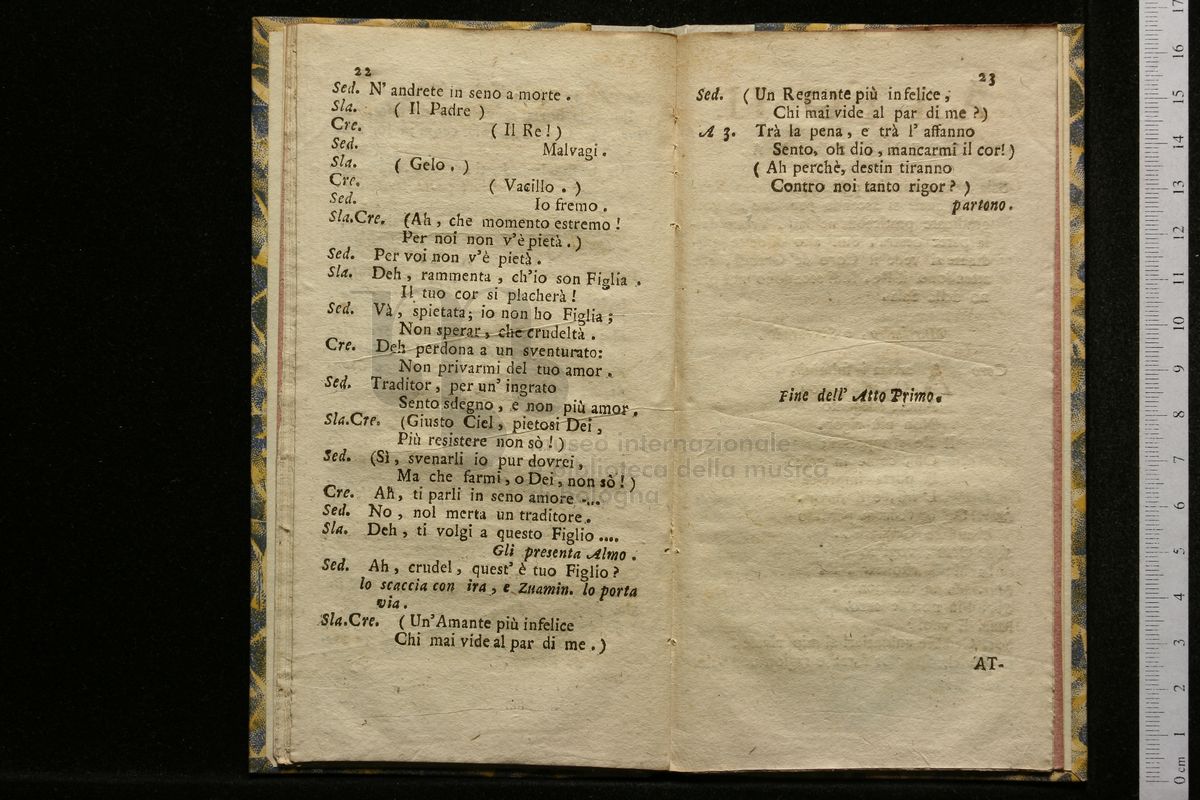 22
Sed. N' andrete in seno a morte .
Sla. ( Il Padre )
Cre. ( Il Re ! )
Sed. Malvagi .
Sla. ( Gelo . )
Cre. ( Vacillo . )
Sed. Io fremo .
Sla.Cre. (Ah , che momento estremo !
Per noi non v'è pietà . )
Sed. Per voi non v'è pietà .
Sla. Deh , rammenta , ch'io son Figlia .
Il tuo cor si placherà !
Sed. Và , spietata; io non ho Figlia ;
Non sperar , che crudeltà .
Cre. Deh perdona a un sventurato:
Non privarmi del tuo amor .
Sed. Traditor , per un' ingrato
Sento sdegno , e non più amor .
Sla.Cre. (Giusto Ciel , pietosi Dei ,
Più resistere non sò ! )
Sed. (Sì , svenarli io pur dovrei ,
Ma che farmi , o Dei , non sò ! )
Cre. Ah , ti parli in seno amore ....
Sed. No , nol merta un traditore .
Sla. Deh , ti volgi a questo Figlio ....
Gli presenta Almo .
Sed. Ah , crudel , quest' è tuo Figlio ?
lo scaccia con ira , e Zuamin. lo porta
via .
Sla.Cre. ( Un'Amante più infelice
Chi mai vide al par di me . )
23
Sed. ( Un Regnante più infelice ,
Chi mai vide al par di me ? )
A 3. Trà la pena , e trà l' affanno
Sento, oh dio , mancarmi il cor! )
( Ah perchè, destin tiranno
Contro noi tanto rigor ? )
partono .
Fine dell' Atto Primo.
AT-
museo internazionale
biblioteca della musica
bologna
0 cm 1 2 3 4 5 6 7 8 9 10 11 12 13 14 15 16 17